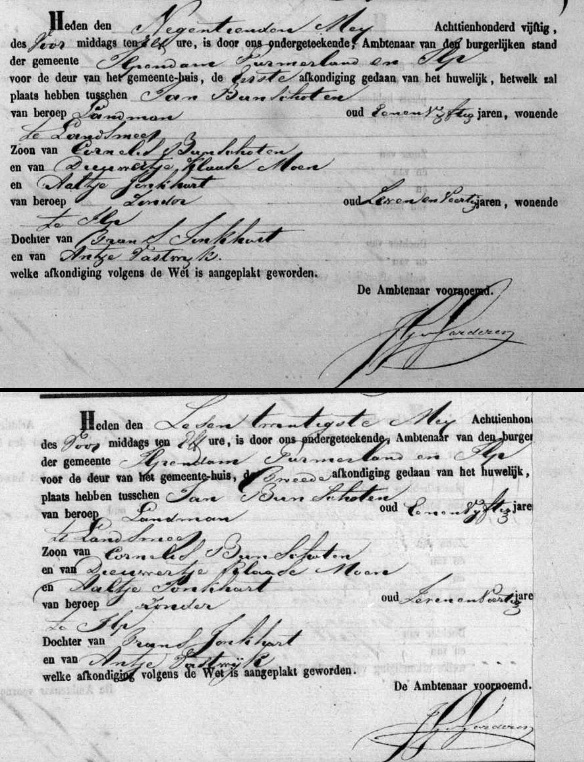 Heden den Negentienden Mey Achttienhonderd vijftig,
des Voor middags ten Elf ure, is door ons ondergeteekende, Ambtenaar van den burgerlijken stand
der gemeente Ilpendam Purmerland en Ilp
voor de deur van het gemeente-huis, de Eerste afkondiging gedaan van het huwelijk, hetwelk zal
plaats hebben tusschen Jan Bunschoten
van beroep Landman oud Eenenvyftig jaren, wonende
te Landsmeer
Zoon van Cornelis Bunschoten
en van Dieuwertje Klaase Moen
en Aaltje Jonkhart
van beroep Zonder oud Zevenenveertig jaren, wonende
te Ilp
Dochter van Frans Jonkhart
en van Antje Pastwyk
welke afkondiging volgens de Wet is aangeplakt geworden.
De Ambtenaar voornoemd.
Heden den Zesentwintigste Mey Achttienhond
des Voor middags ten Elf ure, is door ons ondergeteekende, Ambtenaar van den burger
der gemeente Ilpendam Purmerland en Ilp
voor de deur van het gemeente-huis, de Tweede afkondiging gedaan van het huwelijk,
plaats hebben tusschen Jan Bunschoten
van beroep Landman oud Eenenvyftig jare
te Landsmeer
Zoon van Cornelis Bunschoten
en van Dieuwertje Klaase Moen
en Aaltje Jonkhart
van beroep Zonder oud Zevenenveertig jare
te Ilp
Dochter van Frans Jonkhart
en van Antje Pastwyk
welke afkondiging volgens de Wet is aangeplakt geworden.
De Ambtenaar voornoemd.